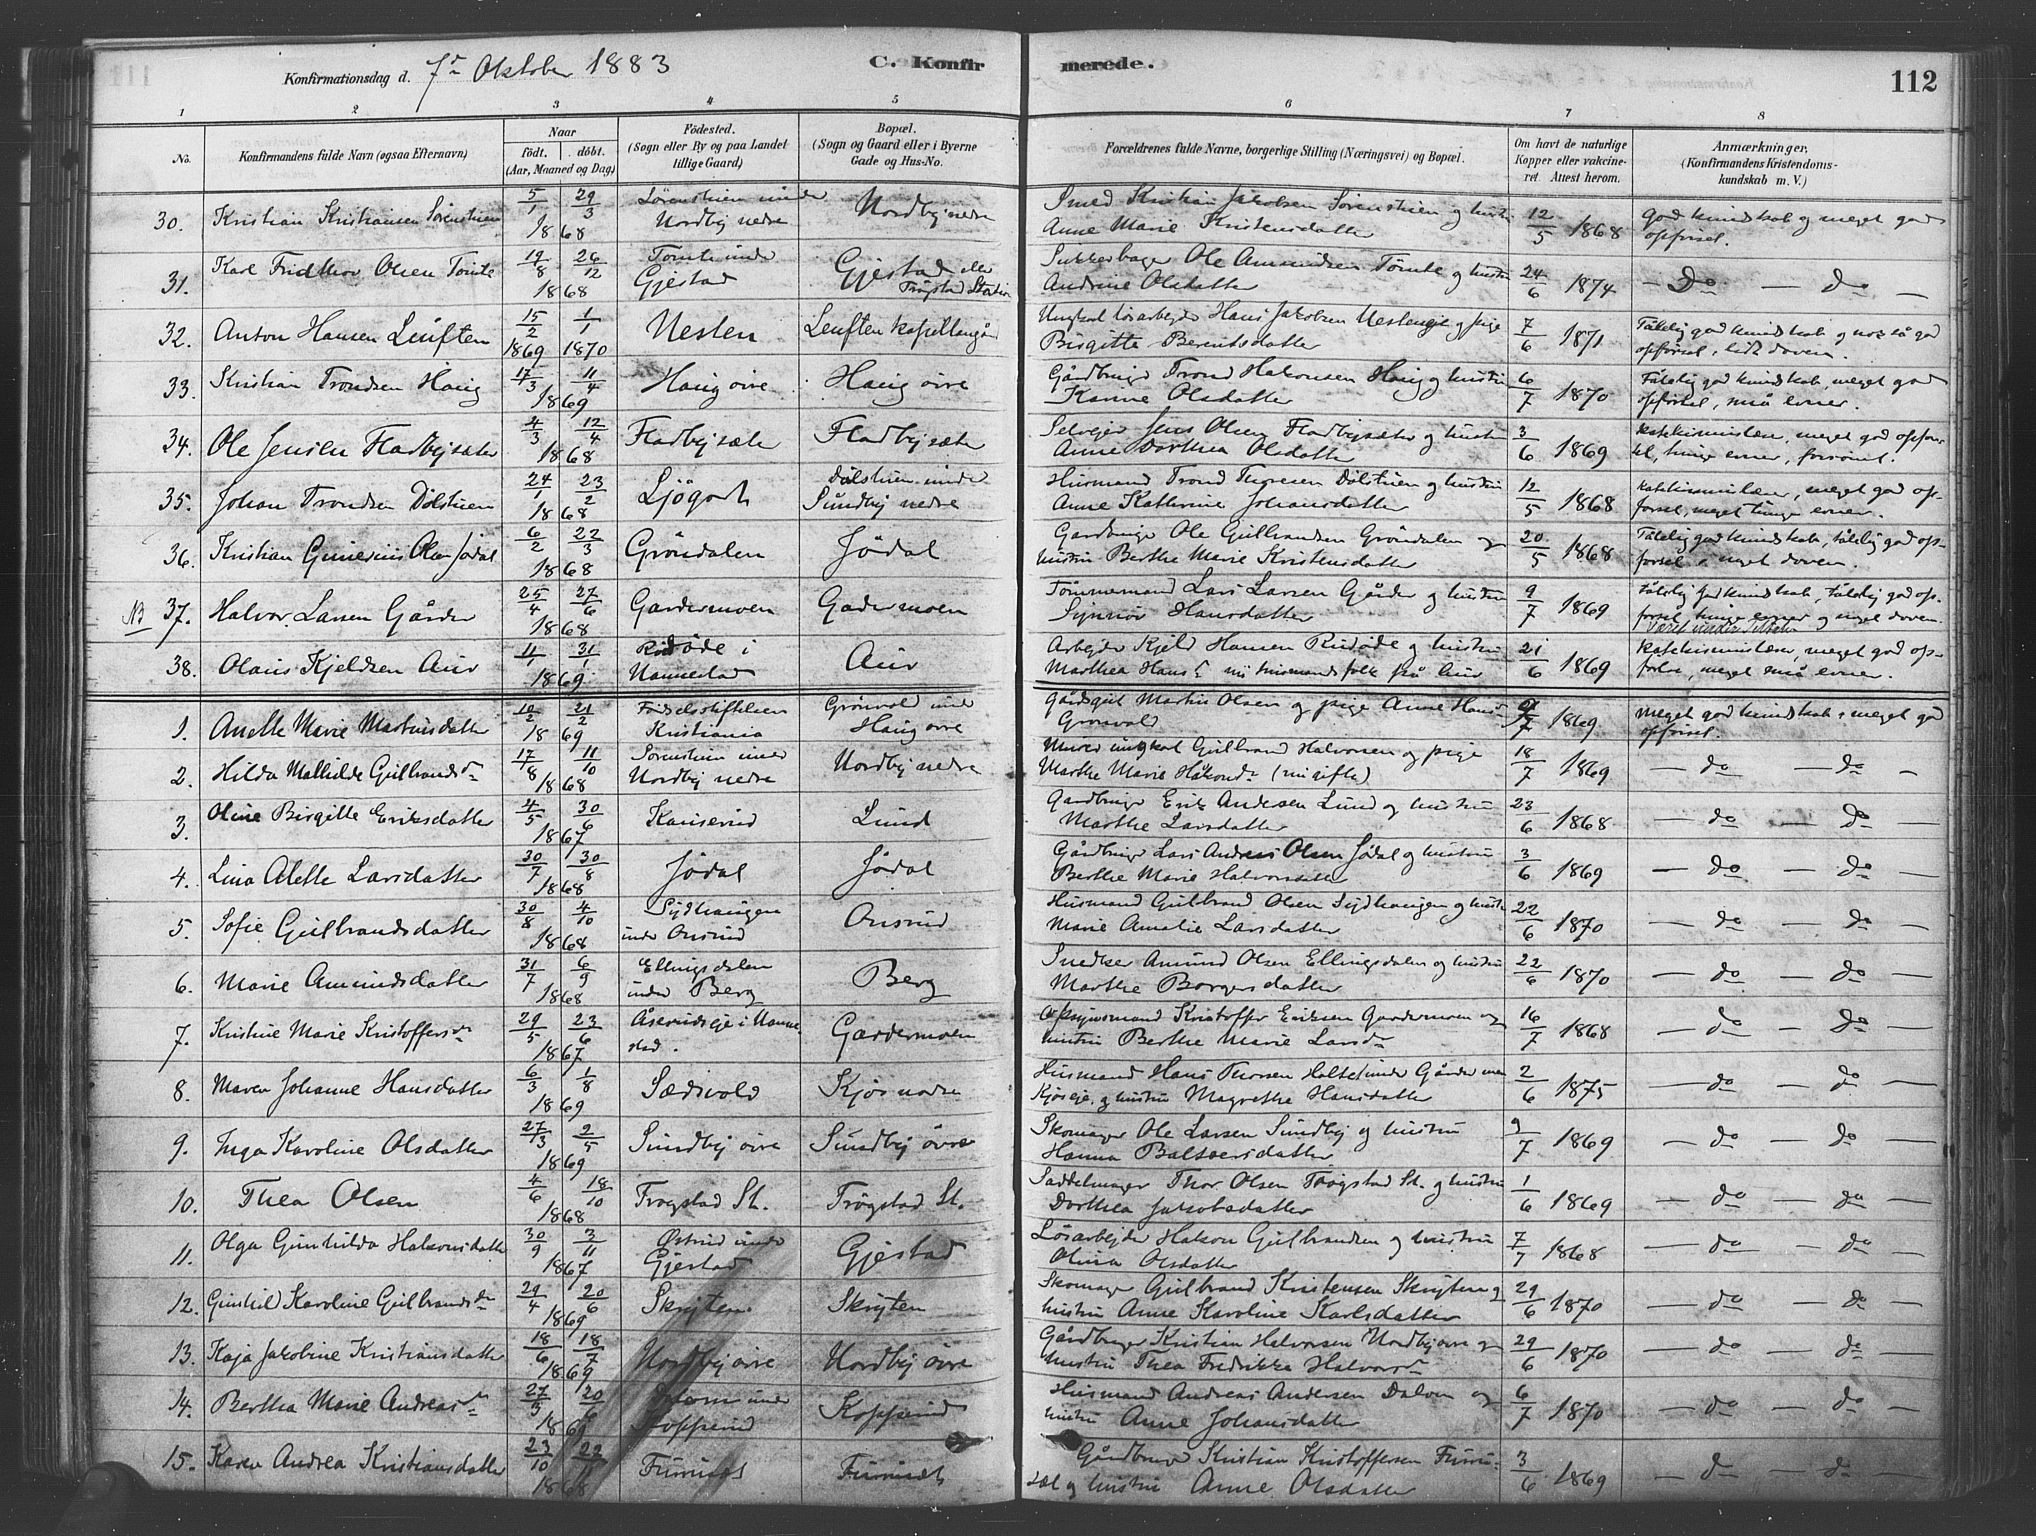 Konfirmationsdag d. 7de Oktober 1883
C. Konfirmerede.
112
1 2 3 4 5 6 7 8
No. Konfirmandens fulde Navn (ogsaa Efternavn) Naar født. døbt. (Aar, Maaned og Dag) Fødested. (Sogn eller By og paa Landet tillige Gaard) Bopæl. (Sogn og Gaard eller i Byerne Gade og Hus-No.) Forældrenes fulde Navne, borgerlige Stilling (Næringsvei) og Bopæl. Om havt de naturlige Kopper eller vakcineret. Attest herom. Anmærkninger, (Konfirmandens Kristendomskundskab m. V.)
30. Kristian Kristiansen Sørenstuen 5/1 29/3 1868 Sørenstuen under Nordby nedre Nordby nedre Smed Kristian Jakobsen Sørenstuen og hustru Anne Marie Kristensdatter 12/5 1868 god kundskab og meget god opførsel.
31. Karl Fridthov Olsen Tømte 19/8 26/12 1868 Tømte under Gjestad Gjestad eller Trøgstad Station Ole Amundsen Tømte og hustru Andrine Olsdatter 24/6 1874 — Do — do —
32. Anton Hansen Leuften 15/2 1869 1/1 1870 Nesten Leuften kapellangård Ungkarl løsarbejder Hans Jakobsen og pige Birgitte Berentsdatter 7/6 1871 Tålelig god kundskab og også god opførsel, lidt doven.
33. Kristian Trondsen Haug 17/3 11/4 1869 Haug øvre Haug øvre Gårdbruger Trond Hakonsen Haug og hustru Karine Olsdatter 6/7 1870 Tålelig god kundskab, meget god opførsel, små evner.
34. Ole Jensen Fladbysæter 4/3 12/4 1868 Fladbysæter Fladbysæter Selvejer Jens Olsen Fladbysæter og hustru Anne Dorthea Olsdatter 3/6 1869 meget god opførsel, tunge evner, forsømt.
35. Johan Trondsen Dølstuen 24/1 23/2 1868 Ljøgodt Dølstuen under Sundby nedre Husmand Trond Thoresen Dølstuen og hustru Anne Kathrine Johansdatter 12/5 1868 meget god opførsel, meget tunge evner.
36. Kristian Gunerius Olsen Jødal 6/2 22/3 1868 Grøndalen Jødal Gårdbruger Ole Gulbrandsen Grøndalen og hustru Berthe Marie Kristensdatter 20/5 1868 Tålelig god kundskab, tålelig god opførsel, meget doven.
NB 37. Halvor Larsen Gårder 25/4 27/6 1868 Gardermoen Gadermoen Tømmermand Lars Larsen Gårder og hustru Synnøv Hansdatter 9/7 1869 Tålelig god kundskab, tålelig god opførsel, tunge evner og meget doven.
38. Olaus Kjeldsen Aur 4/1 31/1 1869 Rudøde i Nannestad Aur Arbejder Kjeld Hansen Rudøde og hustru Marthea Hansd. nu husmandsfolk på Aur 21/6 1869 meget god opførsel, meget små evner.
1. Anette Marie Martinsdatter 10/2 21/2 1869 Fødselsstiftelsen Kristiania Grønvold under Haug øvre Gårdsgut Martin Olsen og pige Anne Hansd. Grønvold 9/7 1869 meget god kundskab, meget god opførsel.
2. Hilda Mathilde Gulbrandsdr 17/8 11/10 1868 Sørenstuen under Nordby nedre Nordby nedre Murer ungkarl Gulbrand Halvorsen og pige Marthe Marie Håkonsdr (nu gifte) 18/7 1869 — do — do —
3. Oline Birgitte Eriksdatter 4/5 30/6 1867 Kauserud Lund Gardbruger Erik Andersen Lund og hustru Marthe Larsdatter 23/6 1868 — do — do —
4. Lina Alette Larsdatter 30/7 30/8 1868 Jødal Jødal Gårdbruger Lars Andreas Olsen Jødal og hustru Berthe Marie Halvorsdatter 3/6 1869 — do — do —
5. Sofie Gulbrandsdatter 30/8 4/10 1868 Sydhaugen under Onsrud Onsrud Husmand Gulbrand Olsen Sydhaugen og hustru Marie Amalie Larsdatter 22/6 1870 — do — do —
6. Marie Amundsdatter 31/7 6/9 1868 Ellingsdalen under Berg Berg Snedker Amund Olsen Ellingsdalen og hustru Marthe Borgersdatter 22/6 1870 — do — do —
7. Kristine Marie Kristoffersdr 29/5 23/6 1867 Åserudseje i Nannestad. Gardermoen Opsynsmand Kristoffer Eriksen Gardermoen og hustru Berthe Marie Larsdr 16/7 1868 — do — do —
8. Maren Johanne Hansdatter 6/3 1/8 1869 Sædsvold Kjøs nedre Husmand Hans Thorsen Holtet under Gårder nu Kjøseje, og hustru Magrethe Hansdatter 2/6 1875 — do — do —
9. Inga Karoline Olsdatter 27/3 2/5 1869 Sundby øvre Sundby øvre Skomager Ole Larsen Sundby og hustru Hanna Baltsersdatter 9/7 1869 — do — do —
10. Thea Olsen 4/6 18/10 1868 Trøgstad St. Trøgstad St. Sadelmager Thor Olsen Trøgstad St. og hustru Dorthea Jakobsdatter 1/6 1869 — do — do —
11. Olga Gunhilda Hakonsdatter 30/9 3/11 1867 Østrud under Gjestad Gjestad Løsarbejder Hakon Gulbrandsen og hustru Olina Olsdatter 7/7 1868 — do — do —
12. Gunhild Karoline Gulbrandsdr 29/4 20/6 1869 Skryten. Skryten Skomager Gulbrand Kristensen Skryten og hustru Anne Karoline Karlsdatter 29/6 1870 — do — do —
13. Kaja Jakobine Kristiansdatter 18/6 18/7 1869 Nordby øvre Nordby øvre Gårdbruger Kristian Halvorsen Nordby øvre og hustru Thea Fredrikke Halvorsdr 29/6 1870 — do — do —
14. Bertha Marie Andreasdr 27/3 20/6 1869 under Kopperud Kopperud Husmand Andreas Andersen Dalen og hustru Anne Johansdatter 6/7 1870 — do — do —
15. Karen Andrea Kristiansdatter 23/10 22/11 1868 Furuset Furuset Gårdbruger Kristian Kristoffersen Furusæt og hustru Anne Olsdatter 3/6 1869 — do — do —